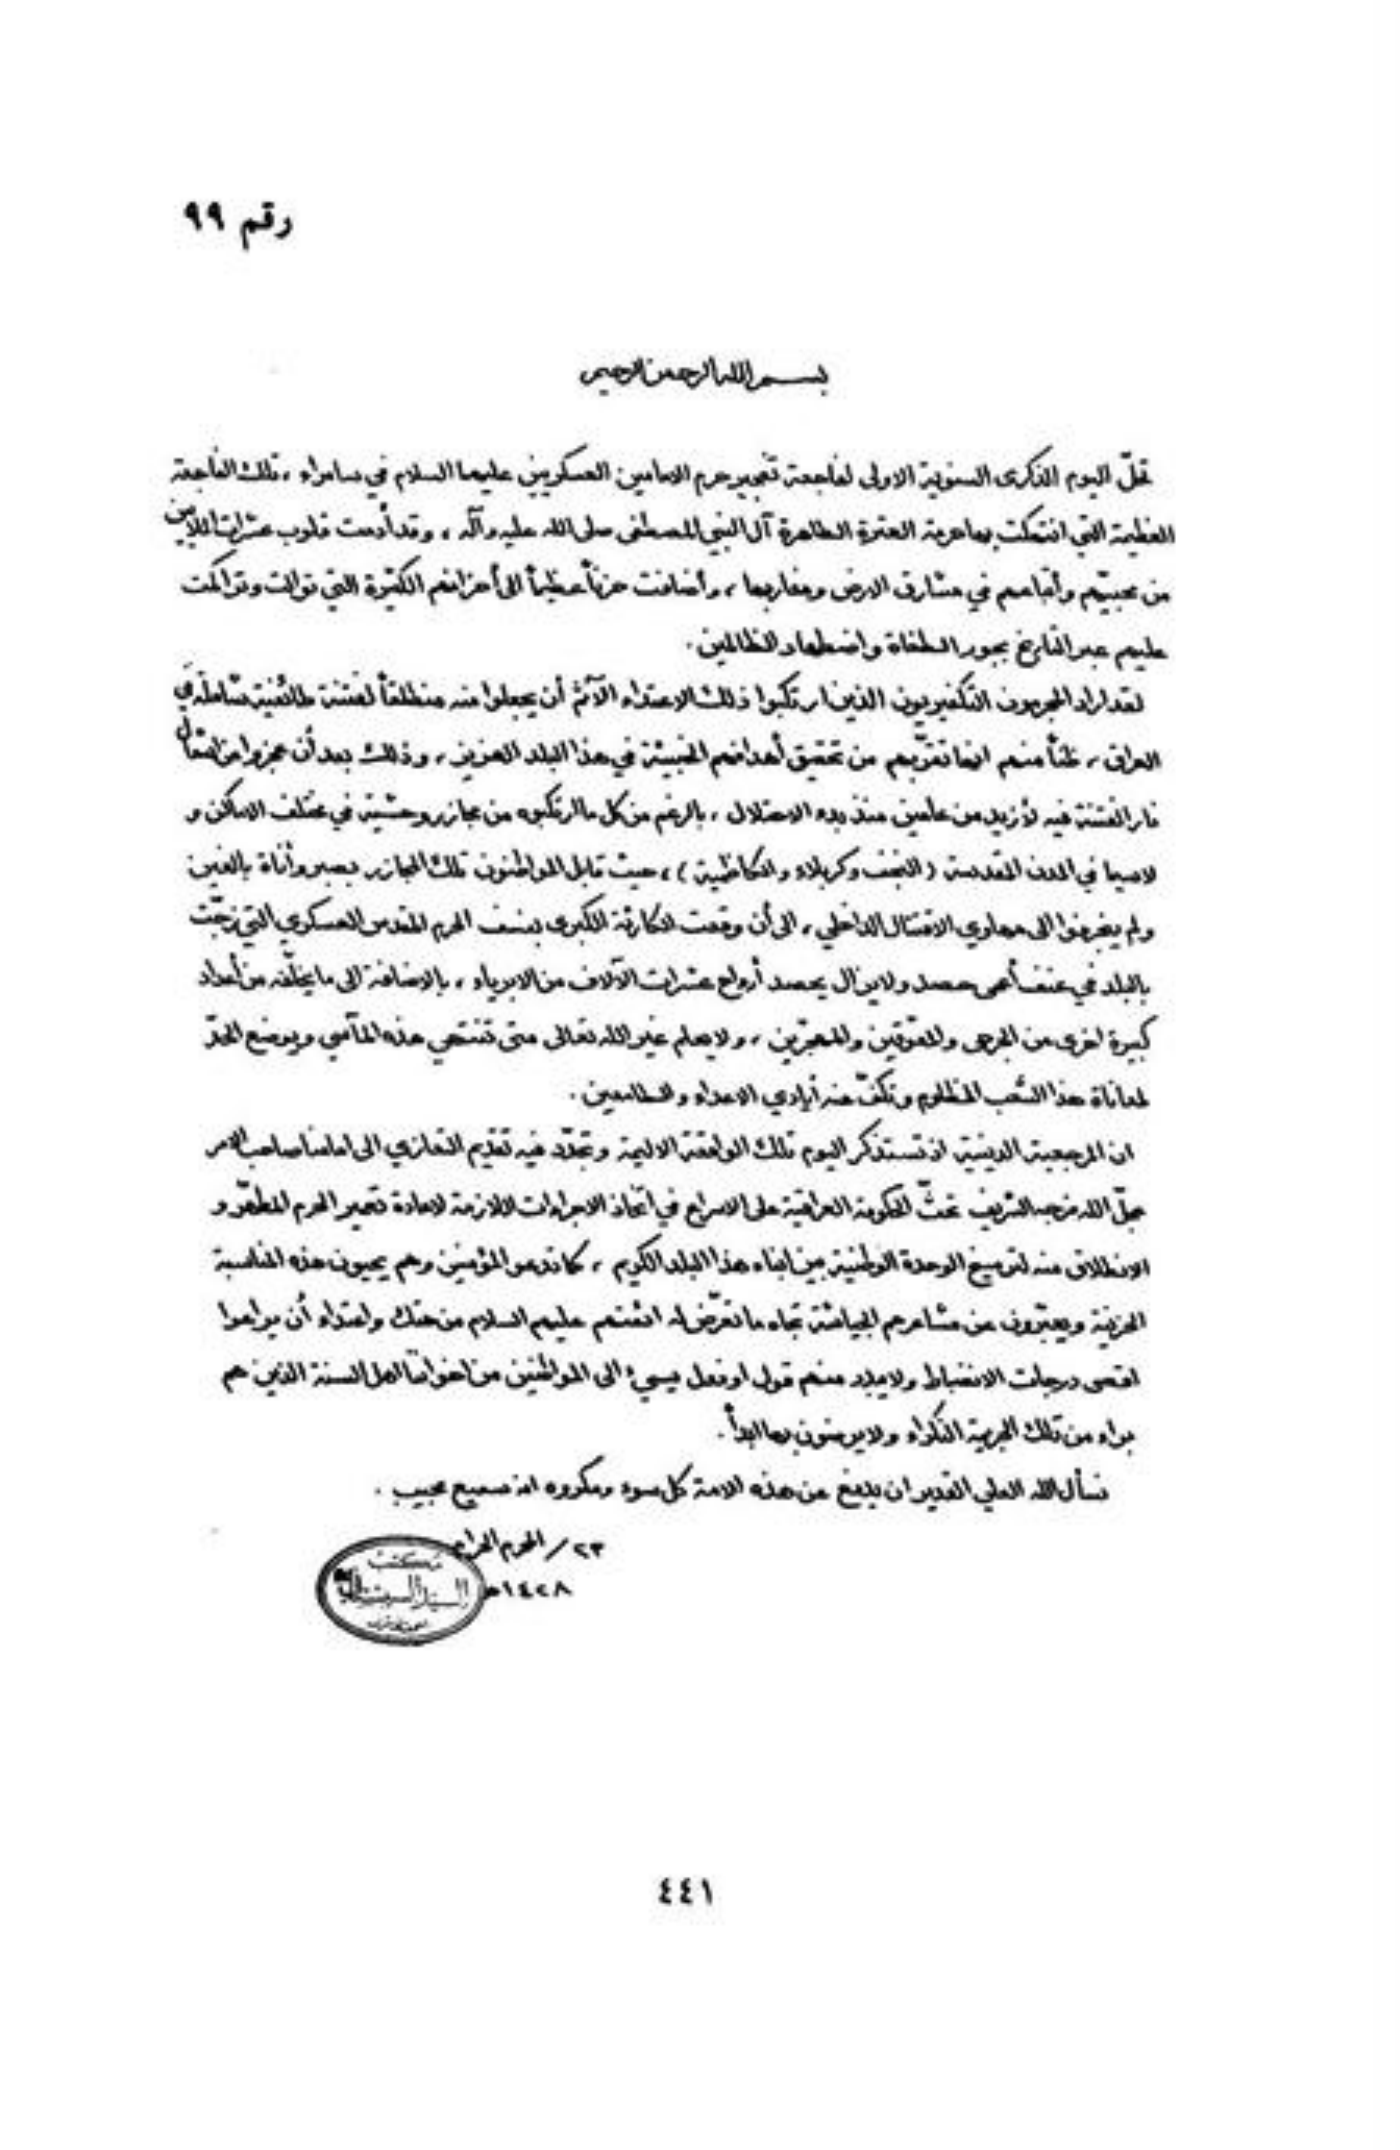 رقم ٩٩
بسم الله الرحمن الرحيم
تحلّ اليوم الذكرى السنوية الاولى لفاجعة تفجير حرم الامامين العسكريين عليهما السلام في سامراء ، تلك الفاجعة
العظيمة التي انتهكت بها حرمة العترة الطاهرة آل النبي المصطفى صلى الله عليه وآله ، وقد أدمت قلوب عشرات الملايين
من محبيّهم وأتباعهم في مشارق الارض ومغاربها ، وأضافت حزناً عظيماً الى أحزانهم الكثيرة التي توالت وتراكمت
عليهم عبر التاريخ بجور الطغاة واضطهاد الظالمين .
لقد اراد المجرمون التكفيريون الذين ارتكبوا ذلك الاعتداء الآثم أن يجعلوا منه منطلقاً لفتنة طائفية شاملة في
العراق ، ظنّاً منهم انها تقرّبهم من تحقيق أهدافهم الخبيثة في هذا البلد العزيز ، وذلك بعد أن عجزوا من اشعال
نار الفتنة فيه لأزيد من عامين منذ بدء الاحتلال ، بالرغم من كل ما ارتكبوه من مجازر وحشية في مختلف الاماكن و
لاسيما في المدن المقدسة ( النجف وكربلاء والكاظمية ) ، حيث قابل المواطنون تلك المجازر بصبر وأناة بالغين
ولم ينجرفوا الى مهاوي الاقتتال الداخلي ، الى أن وقعت الكارثة الكبرى بنسف الحرم المقدس العسكري التي زجّت
بالبلد في عنف أعمى حصد ولايزال يحصد أرواح عشرات الآلاف من الابرياء ، بالاضافة الى ما يخلّفه من أعداد
كبيرة اخرى من الجرحى والمعوّقين والمهجّرين ، ولا يعلم غير الله تعالى متى تنتهي هذه المآسي ويوضع الحدّ
لمعاناة هذا الشعب المظلوم وتكفّ عنه أيادي الاعداء والطامعين .
ان المرجعية الدينية اذ تستذكر اليوم تلك الواقعة الاليمة وتجدّد فيه تقديم التعازي الى امامنا صاحب الامر
عجّل الله فرجه الشريف تحثّ الحكومة العراقية على الاسراع في اتّخاذ الاجراءات اللازمة لاعادة تعمير الحرم المطهّر و
الانطلاق منه لترسيخ الوحدة الوطنية بين ابناء هذا البلد الكريم ، كما تدعو المؤمنين وهم يحيون هذه المناسبة
الحزينة ويعبّرون عن مشاعرهم الجياشة تجاه ما تعرّض له ائمتهم عليهم السلام من هتك واعتداء أن يراعوا
اقصى درجات الانضباط ولا يبدر منهم قول او فعل يسيء الى المواطنين من اخواننا اهل السنة الذين هم
براء من تلك الجريمة النكراء ولا يرضون بها ابداً .
نسأل الله العلي القدير ان يدفع عن هذه الامة كل سوء ومكروه انه سميع مجيب .
٢٣ / المحرم الحرام
١٤٢٨هـ
مكتب
السيد السيستاني
٤٤١